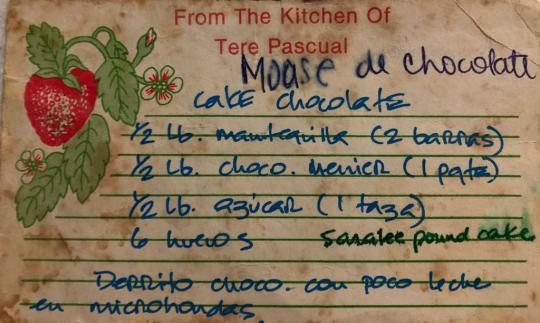 From The Kitchen Of
Tere Pascual
Moase de chocolate
cake chocolate
1/2 Lb. mantequilla (2 barras)
1/2 Lb. choco. menier (1 pqte)
1/2 Lb. azúcar (1 taza)
6 huevos saralee pound cake
Derrito choco. con poco leche
en microhondas.